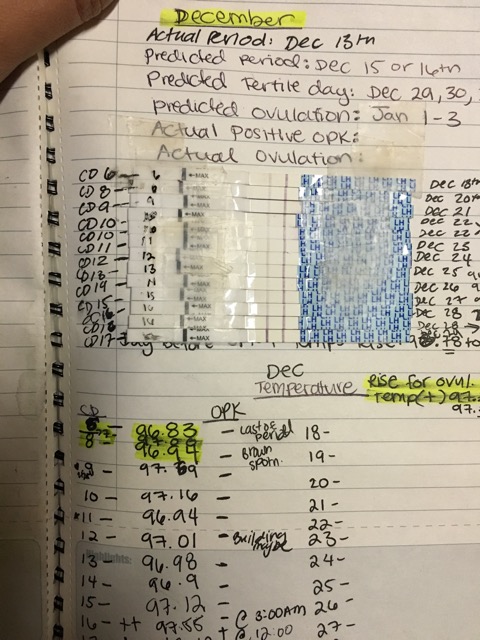 December
Actual Period: Dec 13th
Predicted period: Dec 15 or 16th
Predicted Fertile day: Dec 29, 30,
predicted ovulation: Jan 1-3
Actual positive OPK:
Actual Ovulation:
CD 6 6 ←MAX Dec 18th
CD 8 8 ←MAX Dec 20th
CD 9 9 ←MAX Dec 21
CD 10 ←MAX Dec 22
CD 10 ←MAX Dec 22
CD 11 11 ←MAX Dec 23
CD 12 12 ←MAX Dec 24
CD 13 13 ←MAX Dec 25
CD 14 14 ←MAX Dec 26
CD 15 15 ←MAX Dec 27
16 ←MAX Dec 28
16 ←MAX Dec 28
CD 17 ←MAX
Dec
Temperature Rise for ovul.
Temp(+) 97.
CD OPK 97.
96.83 - Last of period 18-
8 96.94 - Brown spotn. 19-
9 - 97. 9 - 20-
10 - 97.16 - 21-
11 - 96.94 - 22-
12 - 97.01 - Building maybe 23-
13 - 96.98 - 24-
14 - 96.9 - 25-
15 - 97.12 - 26-
16 - ++ 97.55 - @ 3:00AM 27-
+ @ 12:00